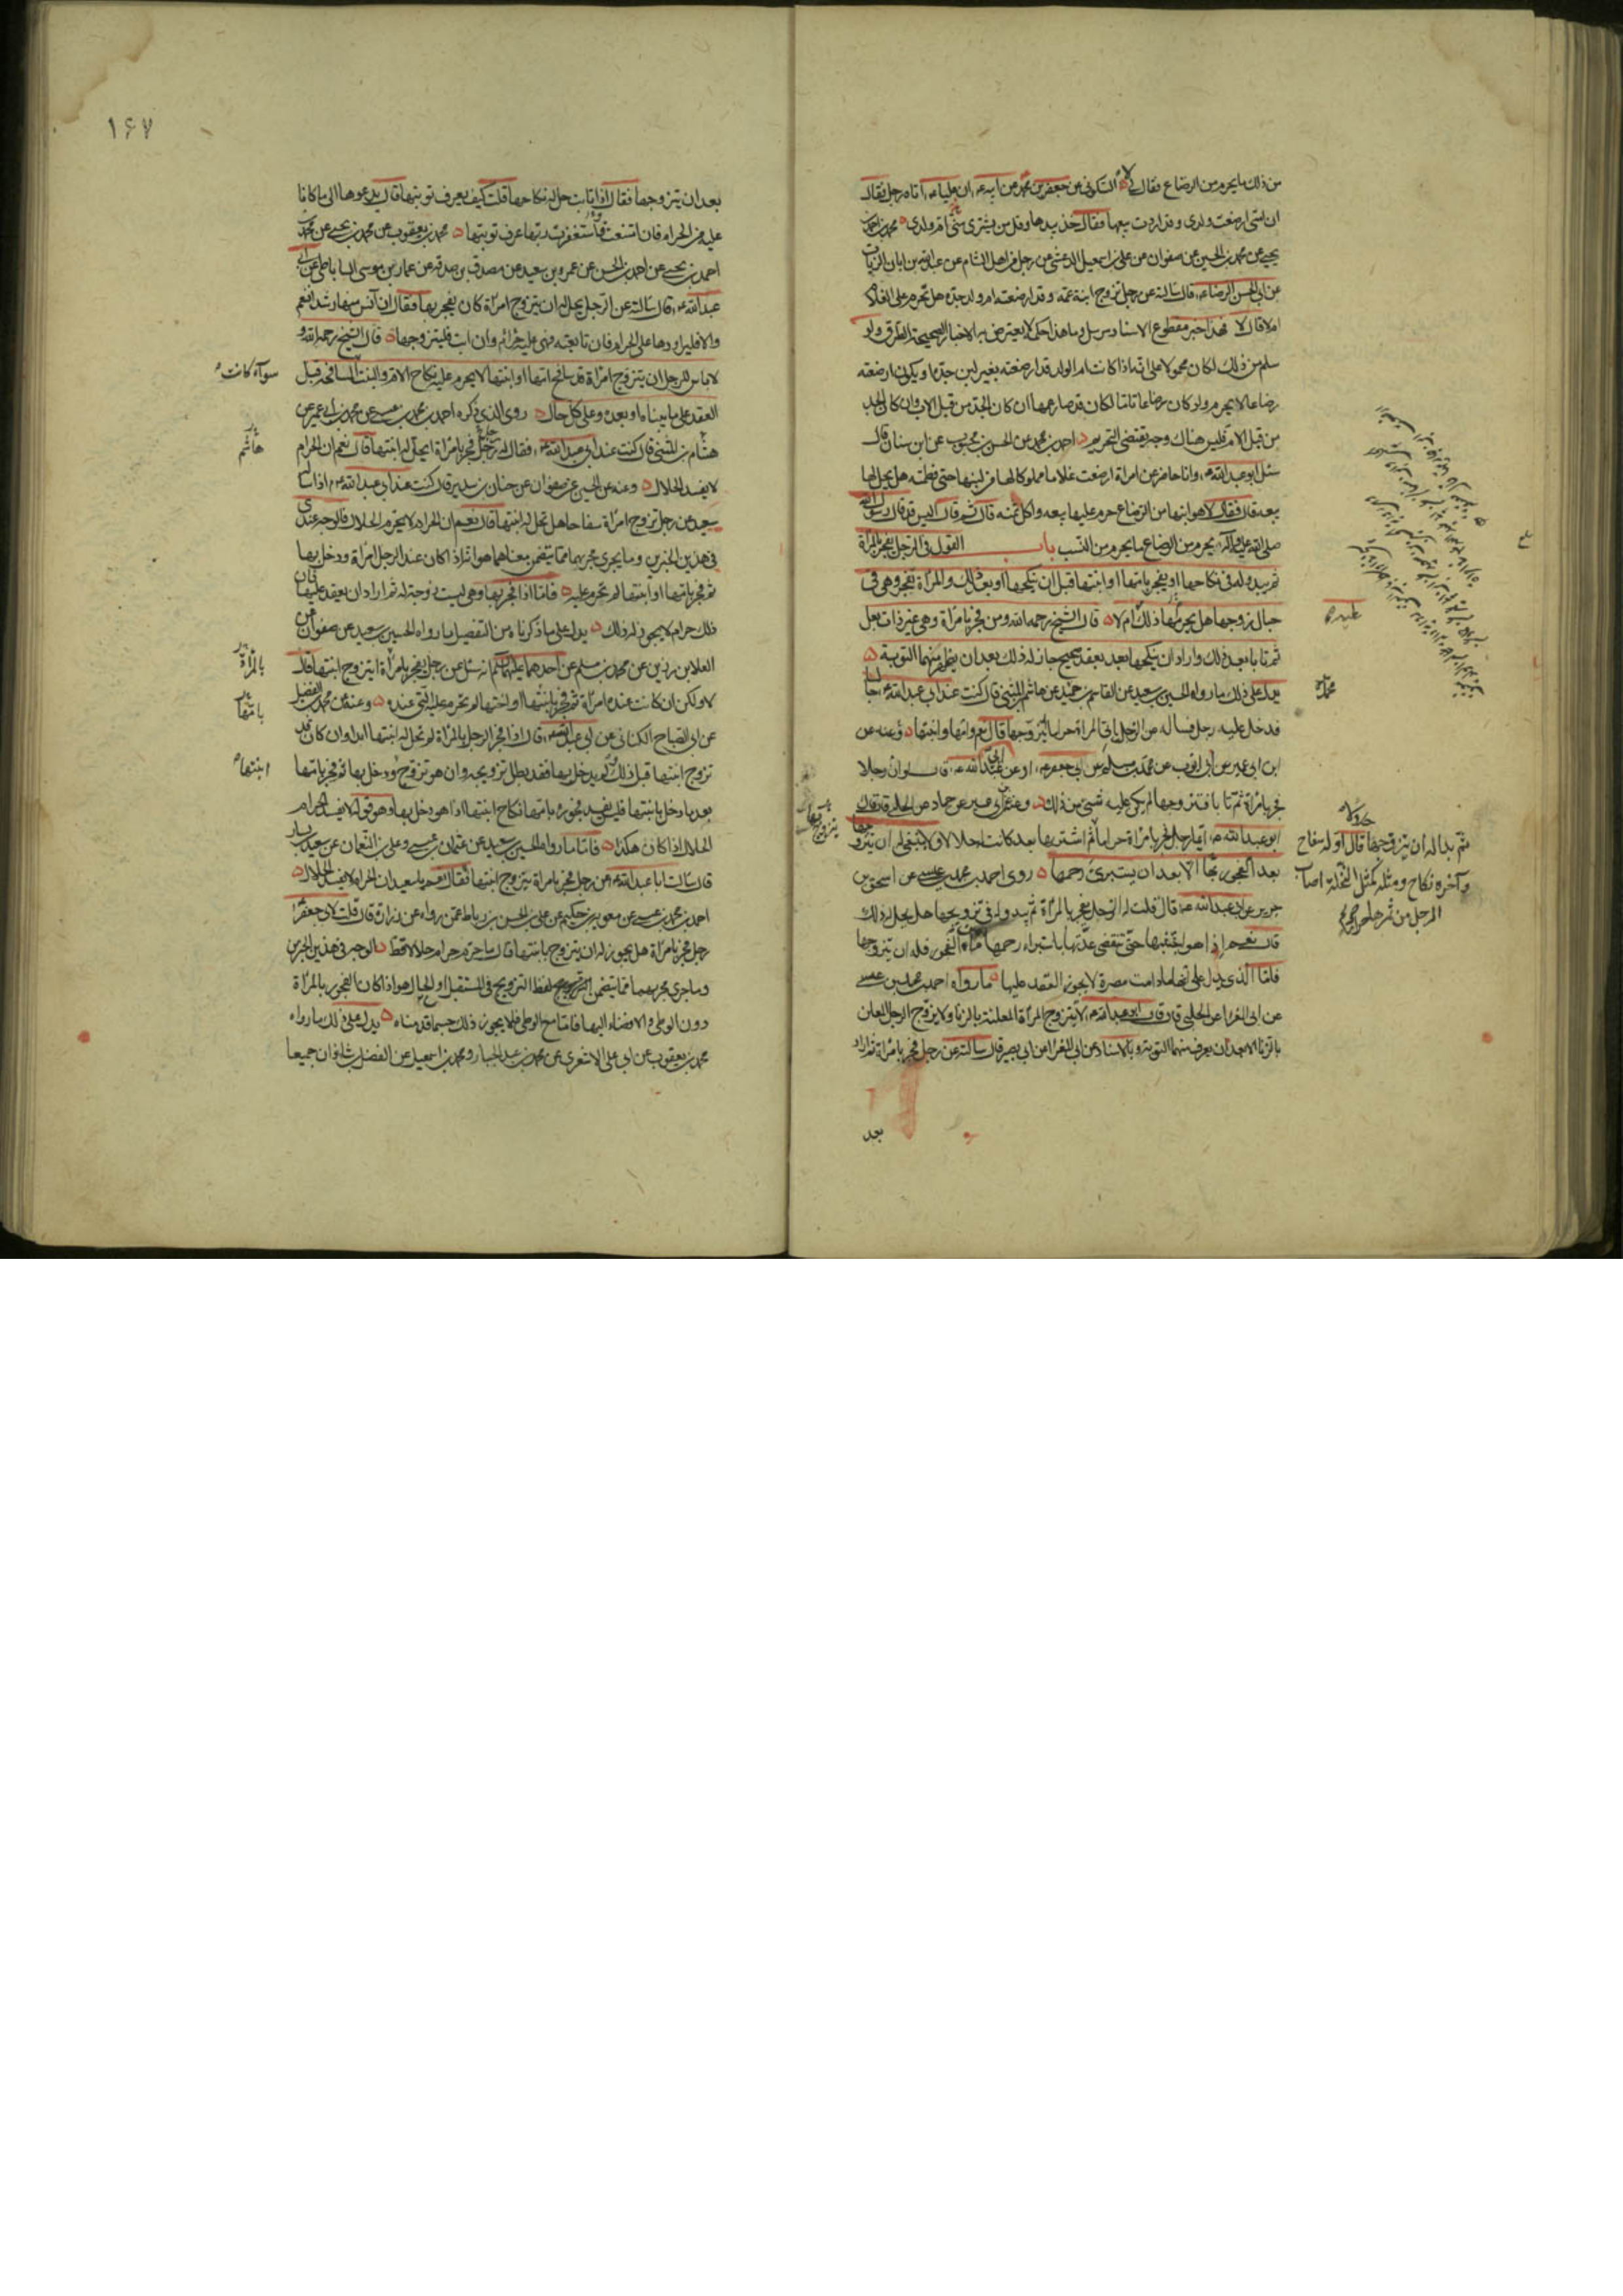 من ذلك ما يحرم من الرضاع فقال لا السكوني عن جعفر بن محمد عن ابيه ان عليا اتاه رجل فقال
ان امتى ارضعت ولدى وقد اردت بيعها فقال خذ بيدها وقل من يشترى منى ام ولدى محمد بن احمد بن
يحيى عن محمد بن الحسين عن صفوان عن على بن اسمعيل الدغشى عن رجل من اهل الشام عن عبد الله بن ابان الزيات
عن ابى الحسن الرضا قال سالته عن رجل تزوج ابنة عمه وقد ارضعته ام ولد جده هل تحرم على الغلام
ام لا قال لا فهذا خبر مقطوع الاسناد مرسل وما هذا حكمه لا يعترض به الاخبار الصحيحة الطرق ولو
سلم من ذلك لكان محمولا على انه اذا كانت ام الولد قد ارضعته بغير لبن جده او يكون ارضعته
رضاعا لا يحرم ولو كان رضاعا تاما لكان قد صار عمها ان كان الجد من قبل الاب وان كان الجد
من قبل الام فليس هناك وجه يقتضى التحريم احمد بن محمد عن الحسن بن محبوب عن ابن سنان قال
سئل ابو عبد الله وانا حاضر عن امراة ارضعت غلاما مملوكا لها من لبنها حتى فطمته هل يحل لها
بيعه قال فقال لا هو ابنها من الرضاع حرم عليها بيعه واكل ثمنه قال ثم قال اليس قد قال رسول الله
صلى الله عليه واله يحرم من الرضاع ما يحرم من النسب باب القول فى الرجل يفجر بالمراة
ثم يبدو له فى نكاحها او يفجر بامها او ابنتها قبل ان ينكحها او بعد ذلك والمراة تفجر وهى فى
حبال زوجها هل يحرمها ذلك ام لا قال الشيخ رحمه الله ومن فجر بامراة وهى غير ذات بعل
ثم تابا بعد ذلك واراد ان ينكحها بعد بعقد صحيح جاز له ذلك بعد ان يظهر منهما التوبة
يدل على ذلك ما رواه الحسين بن سعيد عن القاسم بن حميد عن هاشم بن المثنى قال كنت عند ابى عبد الله جالسا
فدخل عليه رجل فساله عن الرجل ياتى المراة حراما ايتزوجها قال نعم وامها وابنتها وعنه عن
ابن ابى عمير عن ابى ايوب عن محمد بن مسلم عن ابى جعفر او عن ابى عبد الله قال لو ان رجلا
فجر بامراة ثم تابا فتزوجها لم يكن عليه شئ من ذلك وعنه عن ابن ابى عمير عن حماد عن الحلبى قال قال
ابو عبد الله ايما رجل فجر بامراة حراما ثم اشتريها بعد كانت له حلالا ولا ينبغى له ان يتزوجها
بعد الفجور بها الا بعد ان يستبرئ رحمها روى احمد بن محمد بن عيسى عن اسحق بن
جرير عن ابى عبد الله قال قلت له الرجل يفجر بالمراة ثم يبدو له فى تزويجها هل يحل له ذلك
قال نعم اذا هو اجتنبها حتى تنقضى عدتها باستبراء رحمها من ماء الفجور فله ان يتزوجها
فاما الذى يدل على انها مادامت مصرة لا يجوز العقد عليها ما رواه احمد بن محمد بن عيسى
عن ابى المغرا عن الحلبى قال قال ابو عبد الله لا يتزوج المراة المعلنة بالزنا ولا يزوج الرجل المعلن
بالزنا الا بعد ان يعرف منهما التوبة وبالاسناد عن ابى المغرا عن ابى بصير قال سالته عن رجل فجر بامراة ثم اراد
بعد
محمد
ثم بدا له ان يتزوجها قال اوله سفاح
وآخره نكاح ومثله كمثل النخلة اصاب
الرجل من ثمرها حراما
١٦٧
بعد ان يتزوجها فقال اذا تابت حل له نكاحها قلت كيف يعرف توبتها قال يدعوها الى ما كانا
عليه من الحرام فان امتنعت فاستغفرت ربها عرف توبتها محمد بن يعقوب عن محمد بن يحيى عن محمد بن
احمد بن يحيى عن احمد بن الحسن عن عمرو بن سعيد عن مصدق بن صدقة عن عمار بن موسى الساباطى عن ابى
عبد الله قال سالته عن الرجل يحل له ان يتزوج امراة كان يفجر بها فقال ان آنس منها رشدا نعم
والا فليراودها على الحرام فان تابعته فهى عليه حرام وان ابت فليتزوجها قال الشيخ رحمه الله و
لا باس للرجل ان يتزوج امراة قد سافح امها او ابنتها لا يحرم عليه نكاح الام والبنت المسافحة قبل
العقد على ما بيناه او بعده وعلى كل حال روى الذى ذكره احمد بن محمد بن عيسى عن محمد بن ابى عمير عن
هشام بن المثنى قال كنت عند ابى عبد الله فقال له رجل رجل فجر بامراة ايحل له ابنتها قال نعم ان الحرام
لا يفسد الحلال وعنه عن الحسين عن صفوان عن حنان بن سدير قال كنت عند ابى عبد الله اذ ساله
سعيد عن رجل تزوج امراة سفاحا هل تحل له ابنتها قال نعم ان الحرام لا يحرم الحلال فالوجه عندى
فى هذين الخبرين وما يجرى مجريهما مما يتضمن معناهما هو انه اذا كان عند الرجل امراة ودخل بها
ثم فجر بامها او ابنتها لم تحرم عليه فاما اذا فجر بها وهى ليست زوجة له ثم اراد ان يعقد عليها فان
ذلك حرام لا يجوز له ذلك يدل على ما ذكرناه من التفصيل ما رواه الحسين بن سعيد عن صفوان عن
العلا بن رزين عن محمد بن مسلم عن احدهما عليهما السلم انه سئل عن رجل يفجر بامراة ايتزوج ابنتها قال
لا ولكن ان كانت عنده امراة ثم فجر بابنتها او اختها لم تحرم عليه التى عنده وعنه عن محمد بن الفضيل
عن ابى الصباح الكنانى عن ابى عبد الله قال اذا فجر الرجل بالمراة لم تحل له ابنتها ابدا وان كان قد
تزوج ابنتها قبل ذلك ولم يدخل بها فقد بطل تزويجه وان هو تزوج ودخل بها ثم فجر بامها
بعد ما دخل بابنتها فليس يفسد فجوره بامها نكاح ابنتها اذا هو دخل بها وهو قوله لا يفسد الحرام
الحلال اذا كان هكذا فاما ما رواه الحسين بن سعيد عن عثمان بن عيسى وعلى بن النعمان عن سعيد بن يسار
قال سالت ابا عبد الله عن رجل فجر بامراة يتزوج ابنتها فقال نعم يا سعيد ان الحرام لا يفسد الحلال
احمد بن محمد بن عيسى عن معوية بن حكيم عن على بن الحسن بن رباط عمن رواه عن زرارة قال قلت لابى جعفر
رجل فجر بامراة هل يجوز له ان يتزوج بابنتها قال ما حرم حرام حلالا قط الوجه فى هذين الخبرين
وما جرى مجريهما مما يتضمن لفظ التزويج فى المستقبل او الحال هو اذا كان الفجور بالمراة
دون الوطى والافضاء اليها فاما مع الوطى فلا يجوز ذلك حسبما قدمناه يدل على ذلك ما رواه
محمد بن يعقوب عن ابى على الاشعرى عن محمد بن عبد الجبار ومحمد بن اسمعيل عن الفضل بن شاذان جميعا
سواء كانت
هاشم
بالمراة
بامها
ابنتها